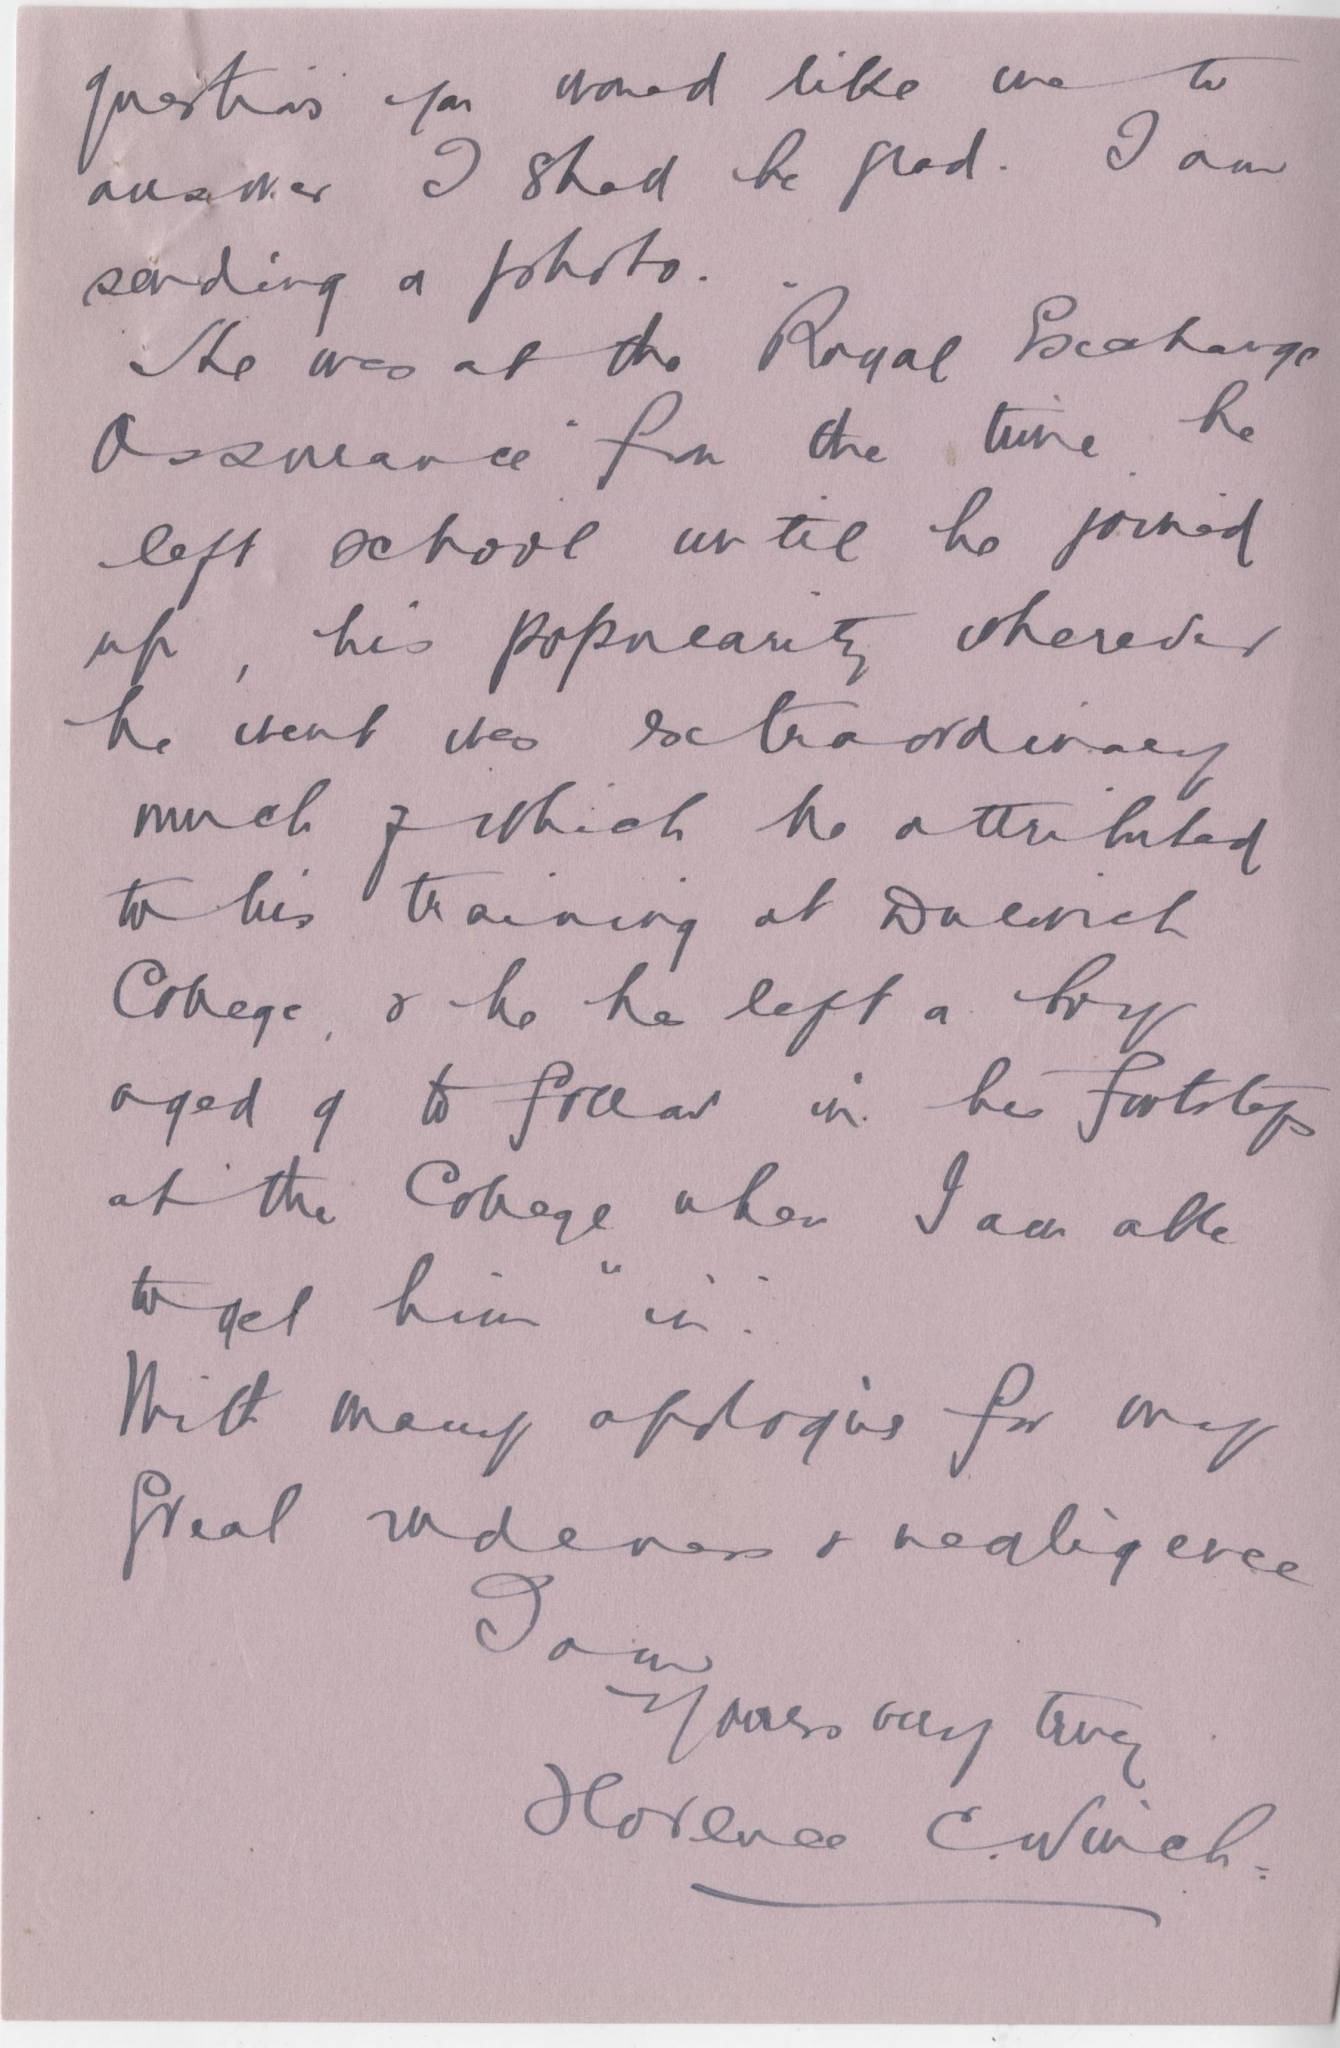 questions you would like me to
answer I shad be glad. I am
sending a photo.
He was at the "Royal Exchange
Assurance" from the time he
left school until he joined
up, his popularity wherever
he went was extraordinary
much of which he attributed
to his training at Dulwich
College, & he has left a boy
aged 9 to follow in his footsteps
at the College when I am able
to get him "in".
With many apologies for my
great rudeness & negligence
I am
Yours very truly
Florence E. Winch.